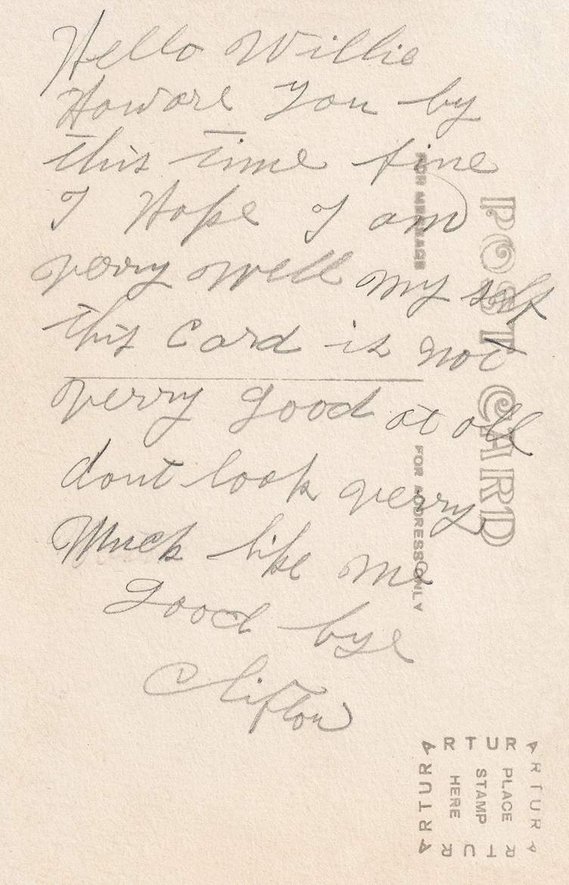 Hello Willie
Howare You by
this time fine
I Hope I am
verry well my self
this Card is not
verry good at all
dont look verry
Much like me
Good bye
Clifton
POST CARD
FOR MESSAGE
FOR ADDRESS ONLY
ARTURA
ARTURA
ARTURA
ARTURA
PLACE
STAMP
HERE